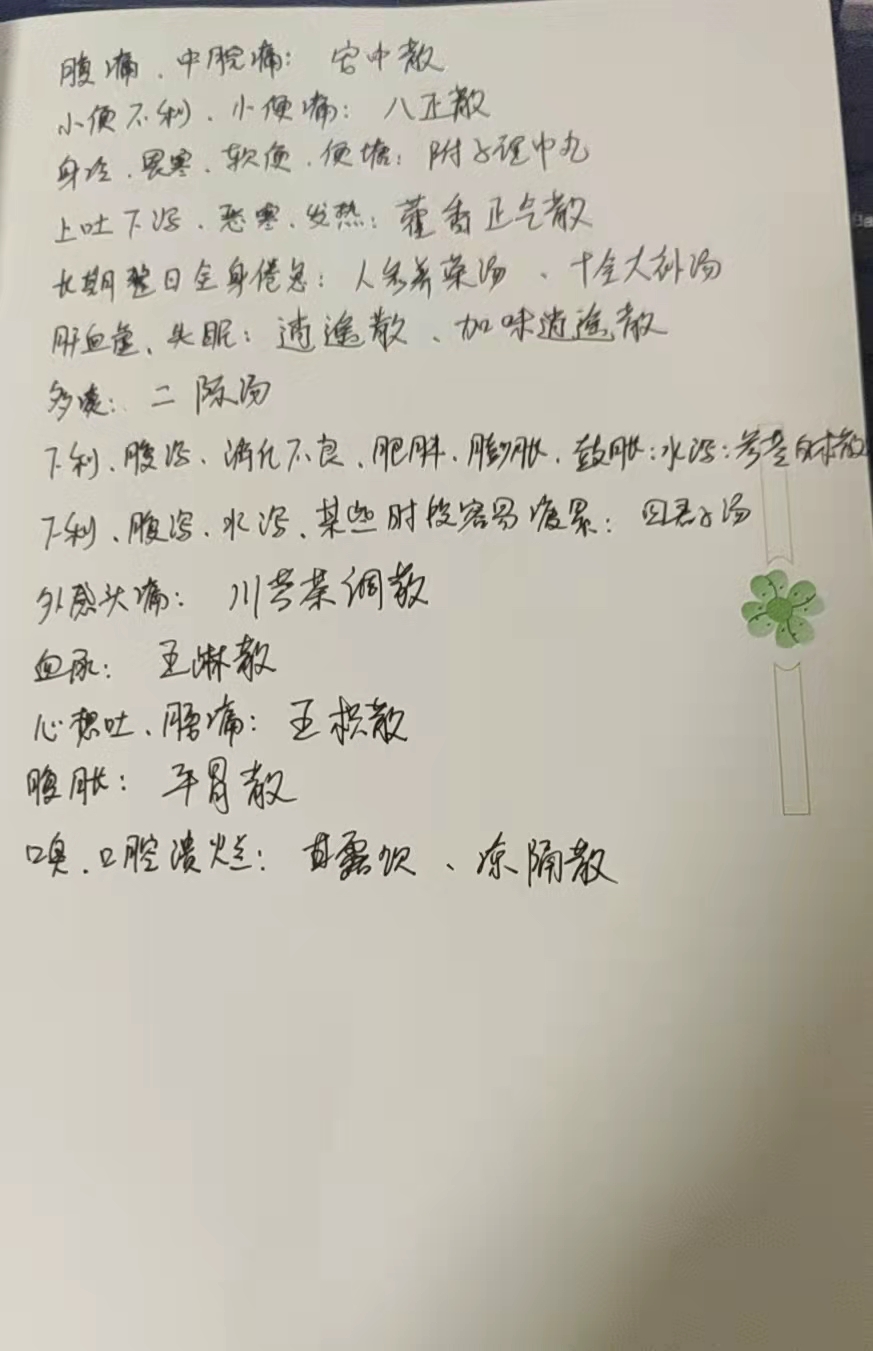 腹痛、中脘痛：安中散
小便不利、小便痛：八正散
身冷、畏寒、软便、便溏：附子理中丸
上吐下泻、恶寒、发热：藿香正气散
长期整日全身倦怠：人参养荣汤、十全大补汤
肝血虚、失眠：逍遥散、加味逍遥散
多痰：二陈汤
下利、腹泻、消化不良、肥胖、膨胀、鼓胀：水泻：参苓白术散
下利、腹泻、水泻、某些时段容易疲累：四君子汤
外感头痛：川芎茶调散
血尿：五淋散
心想吐、腰痛：五积散
腹胀：平胃散
口臭、口腔溃烂：甘露饮、凉隔散